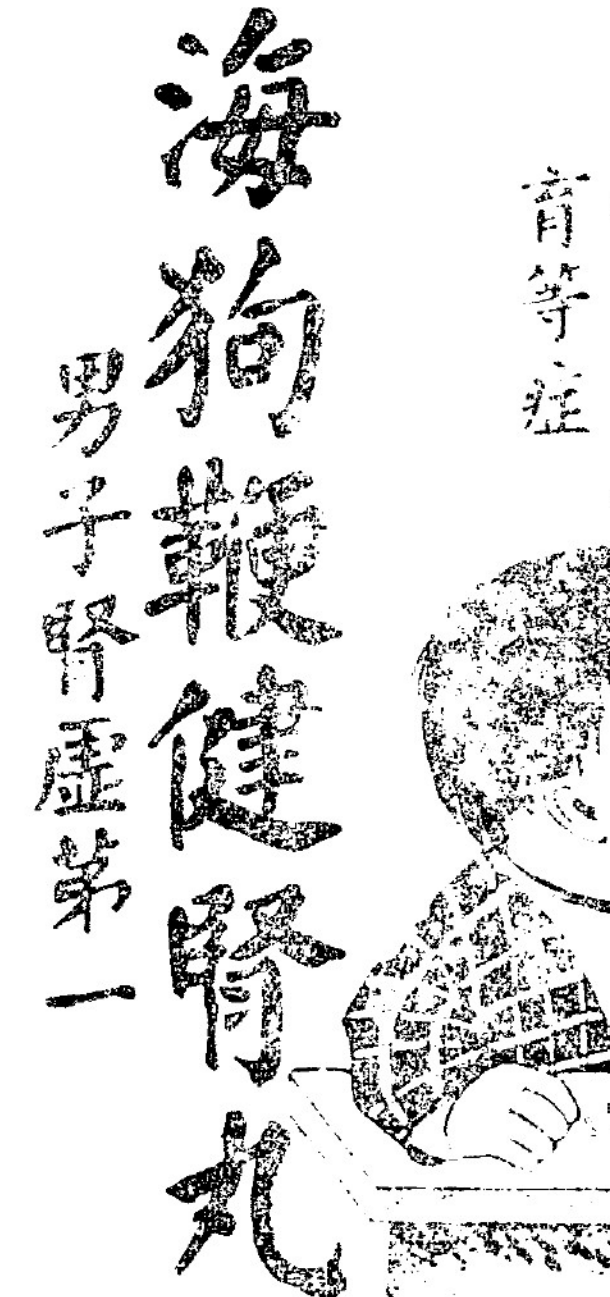 育等症
海狗鞭健腎丸
男子腎虛第一